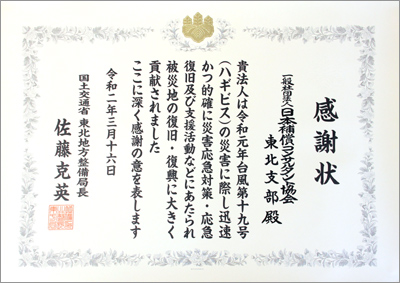 感謝状
一般社団法人日本補償コンサルタント協会
東北支部殿
貴法人は令和元年台風第十九号
(ハギビス)の災害に際し迅速
かつ的確に災害応急対策・応急
復旧及び支援活動などにあたられ
被災地の復旧・復興に大きく
貢献されました
ここに深く感謝の意を表します
令和二年三月十六日
国土交通省 東北地方整備局長
佐藤克英